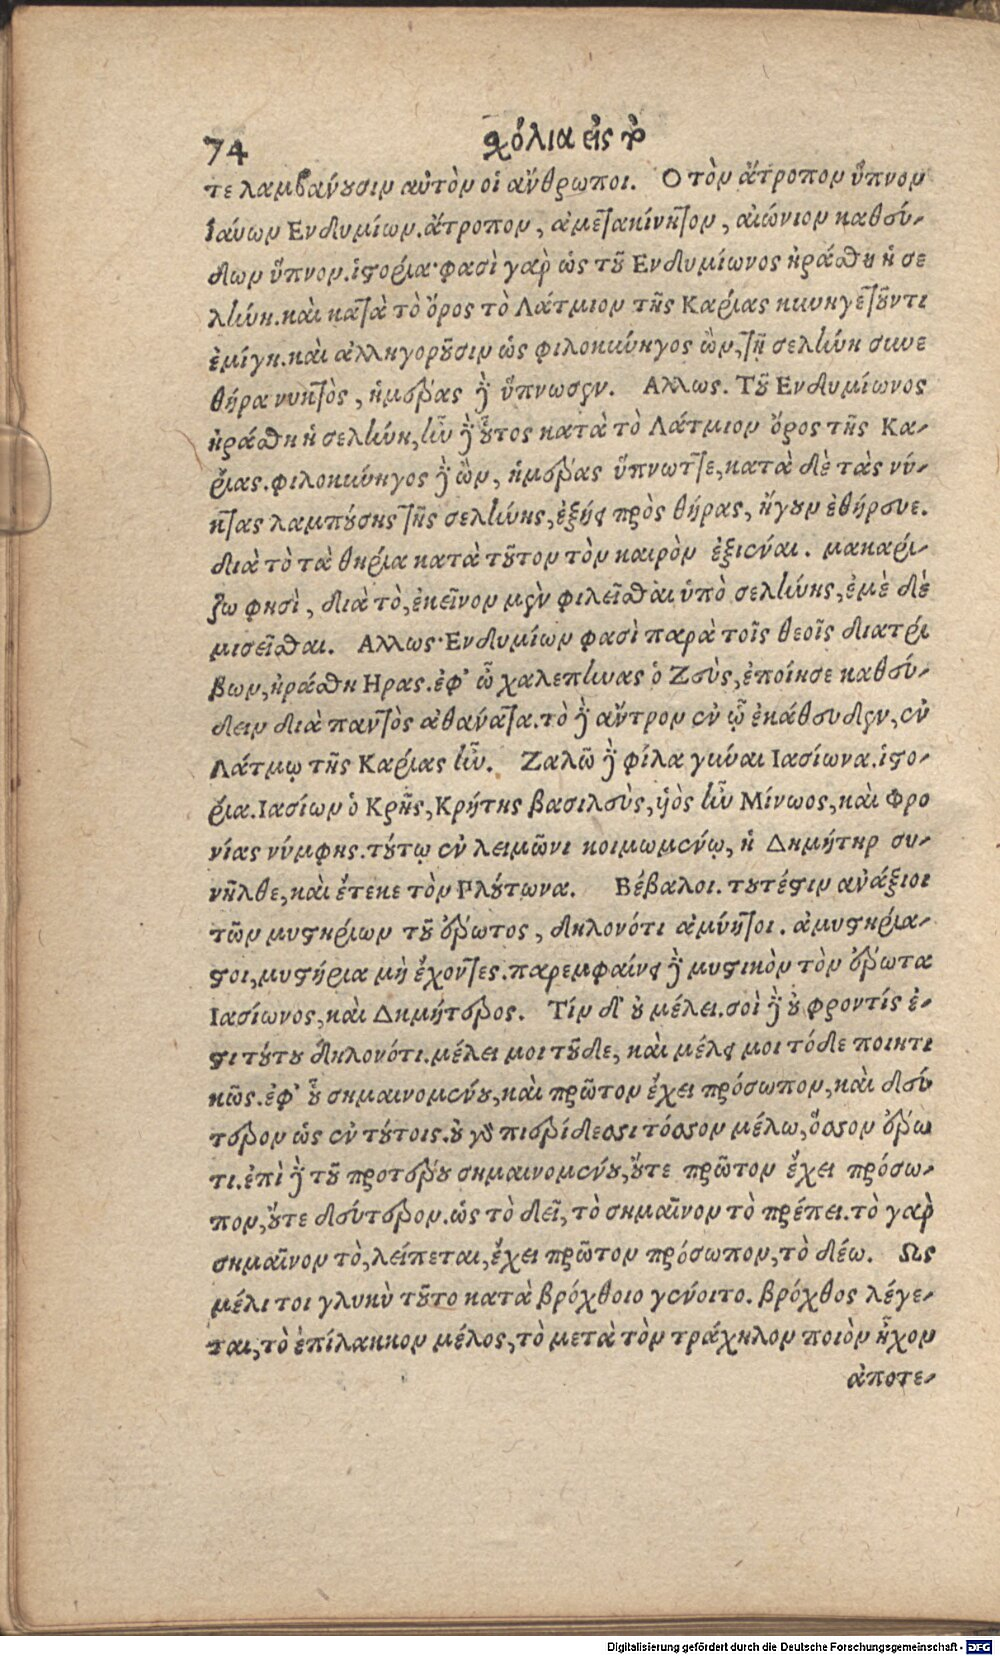 74 σχόλια εἰς τὸ
τε λαμβάνουσιν αὐτὸν οἱ ἄνθρωποι. Ο τὸν ἄτροπον ὕπνον
ἰαύων Ενδυμίων. ἄτροπον, ἀμετακίνητον, αἰώνιον καθεύ-
δων ὕπνον. ἱστορία· φασὶ γὰρ ὡς τοῦ Ενδυμίωνος ἠράσθη ἡ σε
λήνη. καὶ κατὰ τὸ ὄρος τὸ Λάτμιον τῆς Καρίας κυνηγετοῦντι
ἐμίγη. καὶ ἀλληγοροῦσιν ὡς φιλοκύνηγος ὢν, τῇ σελήνῃ συνε
θήρα νυκτὸς, ἡμέρας δὲ ὕπνωσεν. Αλλως. Τοῦ Ενδυμίωνος
ἠράσθη ἡ σελήνη, ἦν δὲ οὗτος κατὰ τὸ Λάτμιον ὄρος τῆς Κα-
ρίας. φιλοκύνηγος δὲ ὢν, ἡμέρας ὕπνωττε, κατὰ δὲ τὰς νύ-
κτας λαμπούσης τῆς σελήνης, ἐξῄει πρὸς θήρας, ἤγουν ἐθήρευε.
διὰ τὸ τὰ θηρία κατὰ τοῦτον τὸν καιρὸν ἐξιέναι. μακαρί-
ζω φησὶ, διὰ τὸ, ἐκεῖνον μὲν φιλεῖσθαι ὑπὸ σελήνης, ἐμὲ δὲ
μισεῖσθαι. Αλλως· Ενδυμίων φασὶ παρὰ τοῖς θεοῖς διατρί
βων, ἠράσθη Ηρας. ἐφ' ᾧ χαλεπήνας ὁ Ζεὺς, ἐποίησε καθεύ-
δειν διὰ παντὸς ἀθάνατα. τὸ δὲ ἄντρον ἐν ᾧ ἐκάθευδεν, ἐν
Λάτμῳ τῆς Καρίας ἦν. Ζαλῶ δὲ φίλα γύναι Ιασίωνα. ἱστο-
ρία. Ιασίων ὁ Κρῆς, Κρήτης βασιλεὺς, υἱὸς ἦν Μίνωος, καὶ Φρο
νίας νύμφης. τούτῳ ἐν λειμῶνι κοιμωμένῳ, ἡ Δημήτηρ συ-
νῆλθε, καὶ ἔτεκε τὸν Πλούτωνα. Βέβαλοι. τουτέστιν ἀνάξιοι
τῶν μυστηρίων τοῦ ἔρωτος, δηλονότι ἀμύητοι. ἀμυστηρία-
στοι, μυστήρια μὴ ἔχοντες. παρεμφαίνει δὲ μυστικὸν τὸν ἔρωτα
Ιασίωνος, καὶ Δημήτερος. Τίν δ' οὐ μέλει. σοὶ δὲ οὐ φροντίς ἐ-
στι τούτου δηλονότι. μέλει μοι τοῦδε, καὶ μέλει μοι τόδε ποιητι
κῶς. ἐφ' οὗ σημαινομένου, καὶ πρῶτον ἔχει πρόσωπον, καὶ δεύ
τερον ὡς ἐν τούτοις. οὐ γὰρ πιερίδεσσι τόσσον μέλω, ὅσσον ἔρω
τι. ἐπὶ δὲ τοῦ προτέρου σημαινομένου, οὔτε πρῶτον ἔχει πρόσω-
πον, οὔτε δεύτερον. ὡς τὸ δεῖ, τὸ σημαῖνον τὸ πρέπει. τὸ γὰρ
σημαῖνον τὸ, λείπεται, ἔχει πρῶτον πρόσωπον, τὸ δέω. Ως
μέλι τοι γλυκὺ τοῦτο κατὰ βρόχθοιο γένοιτο. βρόχθος λέγε-
ται, τὸ ἐπίλακκον μέλος, τὸ μετὰ τὸν τράχηλον ποιὸν ἦχον
ἀποτε-
Digitalisierung gefördert durch die Deutsche Forschungsgemeinschaft - DFG